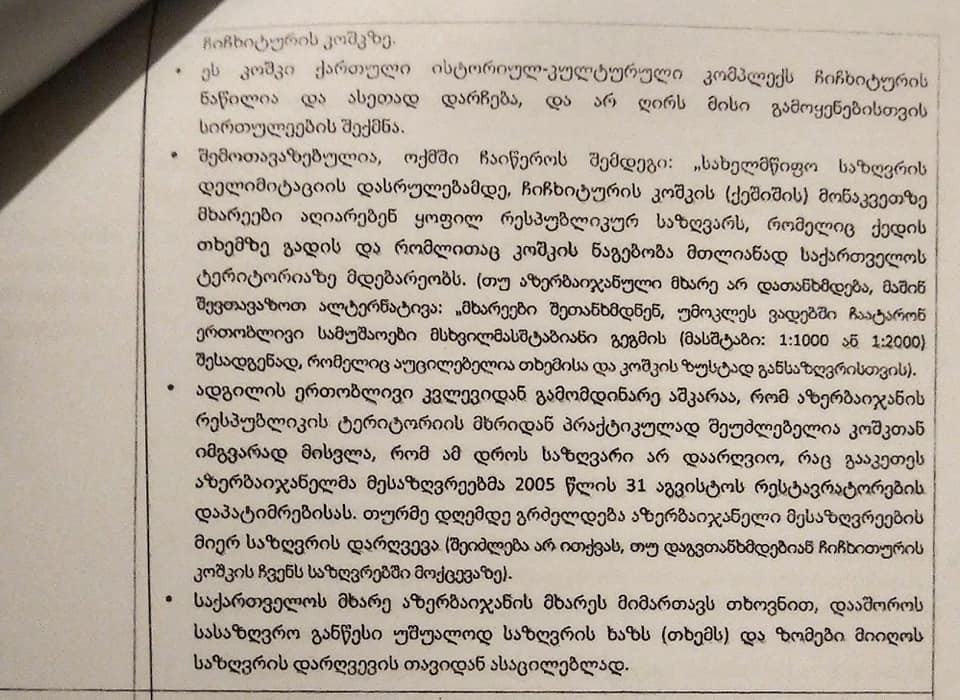 ჩიჩხიტურის კოშკზე.
• ეს კოშკი ქართული ისტორიულ-კულტურული კომპლექს ჩიჩხიტურის
ნაწილია და ასეთად დარჩება, და არ ღირს მისი გამოყენებისთვის
სირთულეების შექმნა.
• შემოთავაზებულია, ოქმში ჩაიწეროს შემდეგი: „სახელმწიფო საზღვრის
დელიმიტაციის დასრულებამდე, ჩიჩხიტურის კოშკის (ქეშიშის) მონაკვეთზე
მხარეები აღიარებენ ყოფილ რესპუბლიკურ საზღვარს, რომელიც ქედის
თხემზე გადის და რომლითაც კოშკის ნაგებობა მთლიანად საქართველოს
ტერიტორიაზე მდებარეობს. (თუ აზერბაიჯანული მხარე არ დათანხმდება, მაშინ
შევთავაზოთ ალტერნატივა: „მხარეები შეთანხმდნენ, უმოკლეს ვადებში ჩაატარონ
ერთობლივი სამუშაოები მსხვილმასშტაბიანი გეგმის (მასშტაბი: 1:1000 ან 1:2000)
შესადგენად, რომელიც აუცილებელია თხემისა და კოშკის ზუსტად განსაზღვრისთვის).
• ადგილის ერთობლივი კვლევიდან გამომდინარე აშკარაა, რომ აზერბაიჯანის
რესპუბლიკის ტერიტორიის მხრიდან პრაქტიკულად შეუძლებელია კოშკთან
იმგვარად მისვლა, რომ ამ დროს საზღვარი არ დაარღვიო, რაც გააკეთეს
აზერბაიჯანელმა მესაზღვრეებმა 2005 წლის 31 აგვისტოს რესტავრატორების
დაპატიმრებისას. თურმე დღემდე გრძელდება აზერბაიჯანელი მესაზღვრეების
მიერ საზღვრის დარღვევა (შეიძლება არ ითქვას, თუ დაგვთანხმდებიან ჩიჩხითურის
კოშკის ჩვენს საზღვრებში მოქცევაზე).
• საქართველოს მხარე აზერბაიჯანის მხარეს მიმართავს თხოვნით, დააშოროს
სასაზღვრო განწესი უშუალოდ საზღვრის ხაზს (თხემს) და ზომები მიიღოს
საზღვრის დარღვევის თავიდან ასაცილებლად.